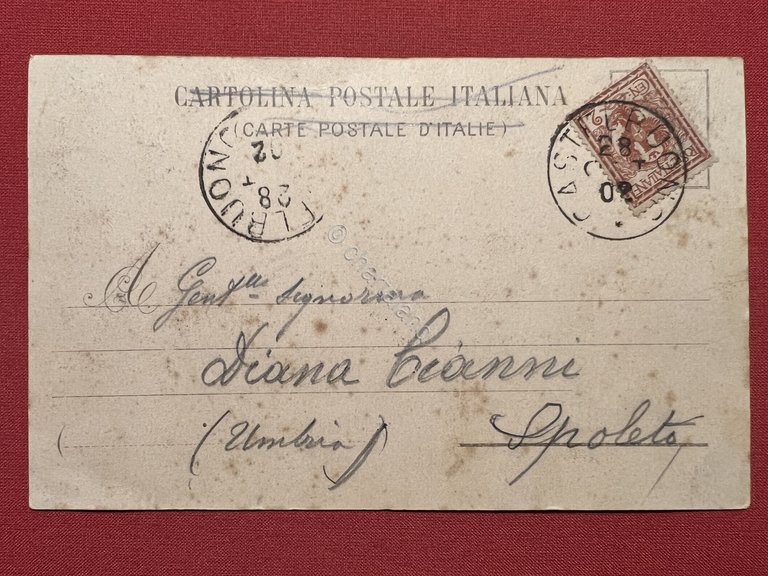 CARTOLINA POSTALE ITALIANA
(CARTE POSTALE D'ITALIE)
ELRUONO
28
02
CASTELRUONO
28
02
A Gent.ma Signorina
Diana Cianni
(Umbria) Spoleto